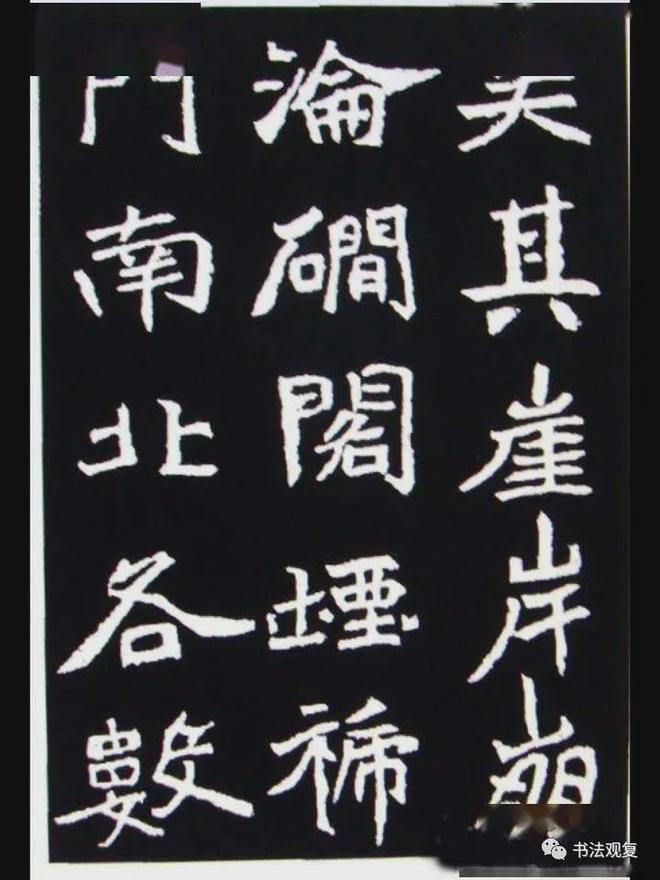 矣其崖岸崩
淪礀閣堙褫
門南北各數
书法观复